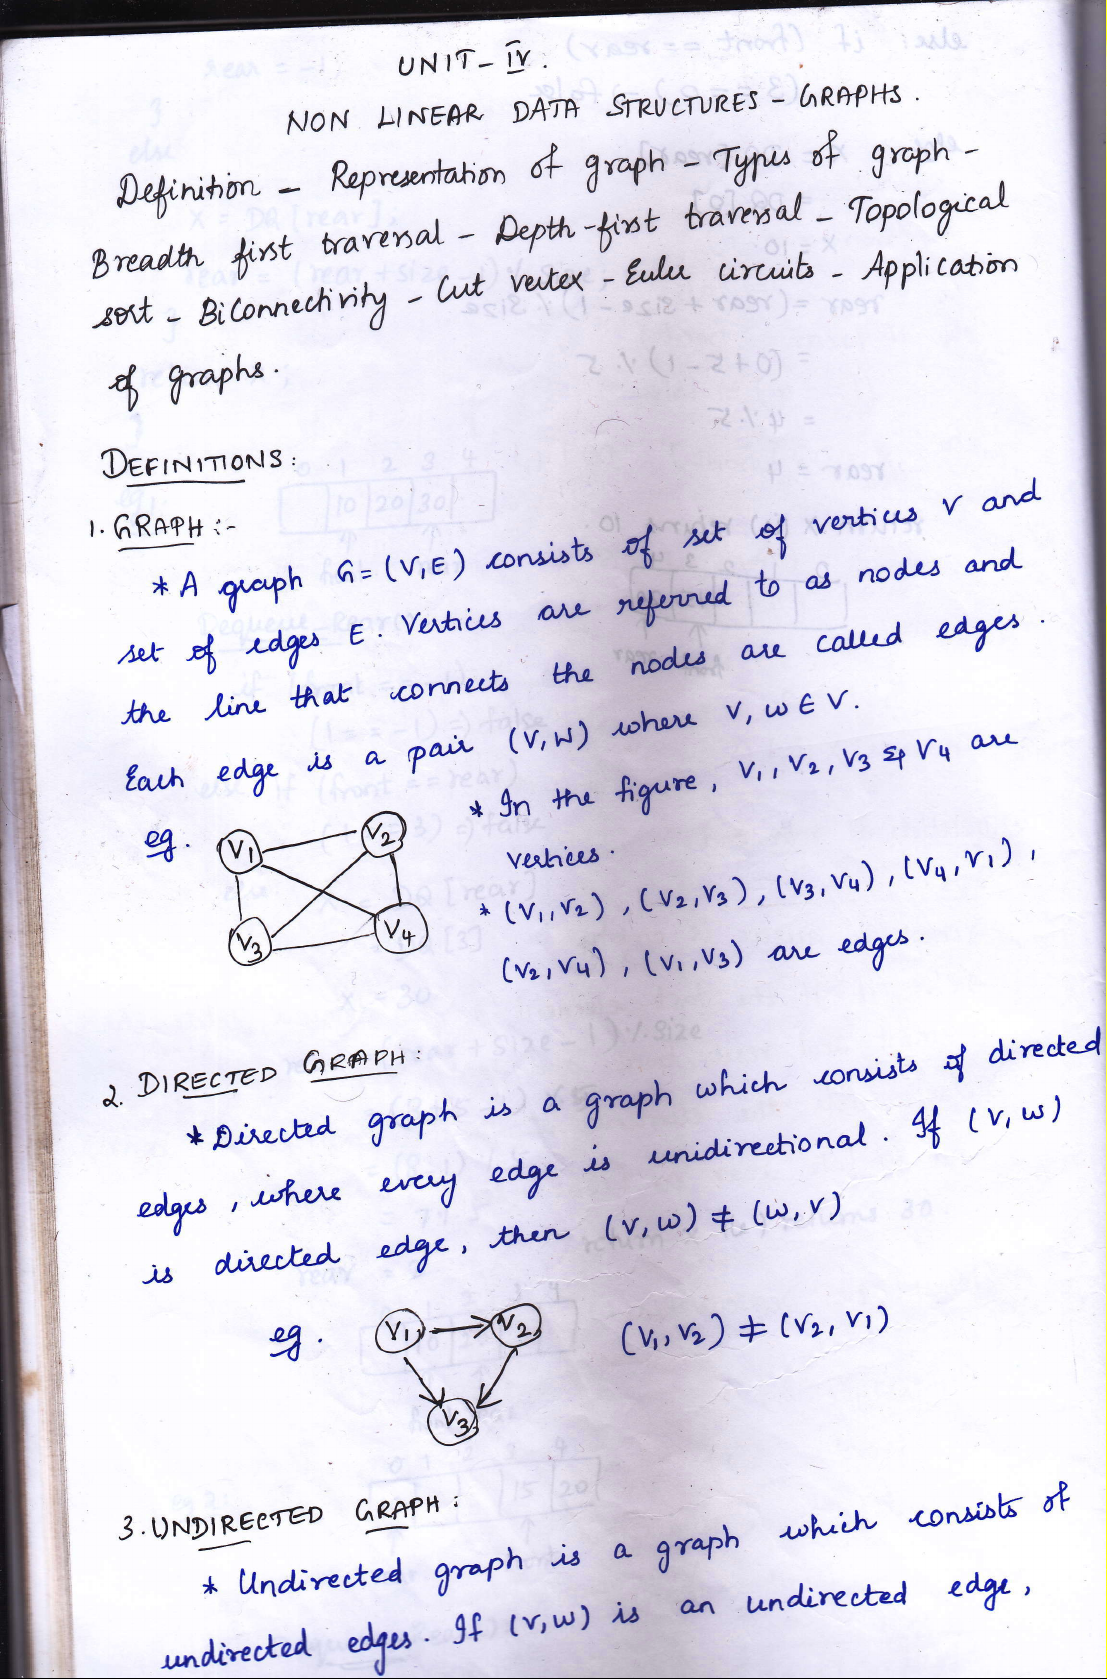 UNIT-IV.
NON LINEAR DATA STRUCTURES - GRAPHS.
Definition - Representation of graph - Types of graph -
Breadth first traversal - Depth-first traversal - Topological
sort - BiConnectivity - Cut vertex - Euler circuits - Application
of graphs.
DEFINITIONS:
1. GRAPH :-
* A graph G = (V, E) consists of set of vertices V and
set of edges E. Vertices are referred to as nodes and
the line that connects the nodes are called edges.
Each edge is a pair (V, W) where V, W ∈ V.
eg.
V1
V2
V3
V4
* In the figure, V1, V2, V3 & V4 are
vertices.
* (V1, V2), (V2, V3), (V3, V4), (V4, V1),
(V2, V4), (V1, V3) are edges.
2. DIRECTED GRAPH:
* Directed graph is a graph which consists of directed
edges, where every edge is unidirectional. If (V, W)
is directed edge, then (V, W) ≠ (W, V)
eg.
V1
V2
V3
(V1, V2) ≠ (V2, V1)
3. UNDIRECTED GRAPH:
* Undirected graph is a graph which consists of
undirected edges. If (V, W) is an undirected edge,